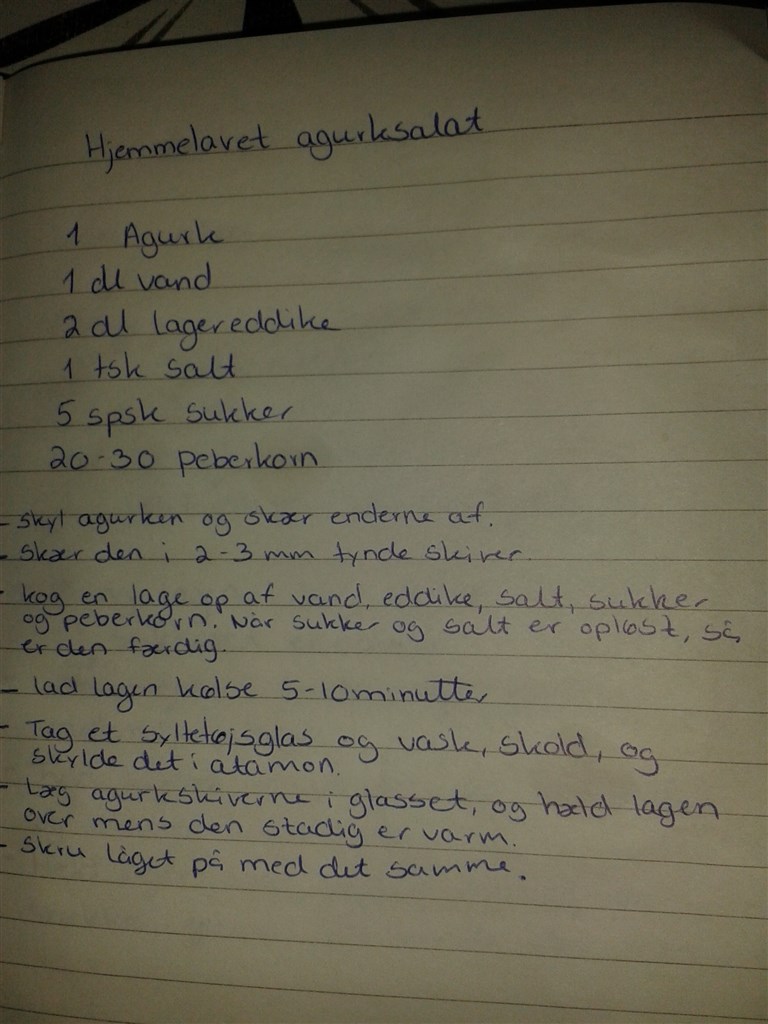 Hjemmelavet agurksalat
1 Agurk
1 dl vand
2 dl lagereddike
1 tsk salt
5 spsk sukker
20-30 peberkorn
- skyl agurken og skær enderne af.
- skær den i 2-3 mm tynde skiver.
- kog en lage op af vand, eddike, salt, sukker
og peberkorn. Når sukker og salt er opløst, så
er den færdig.
- lad lagen kølse 5-10minutter
- Tag et syltetøjsglas og vask, skold, og
skylde det i atamon.
- Læg agurkskiverne i glasset, og hæld lagen
over mens den stadig er varm.
- skru låget på med det samme.